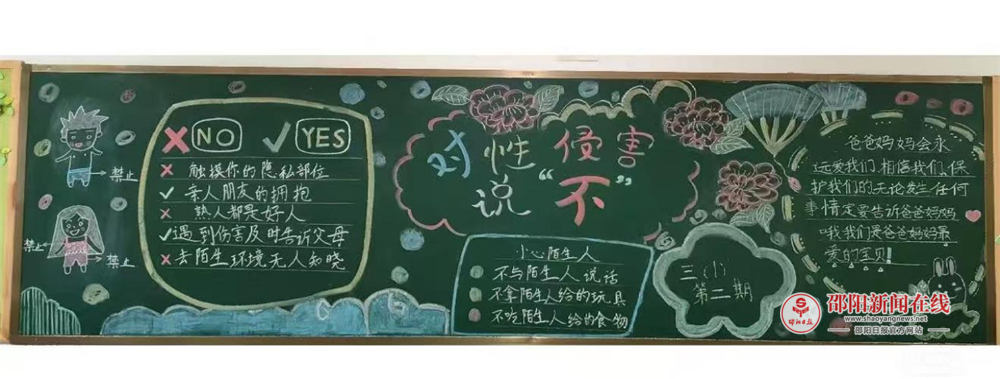 禁止
禁止
禁止
NO
YES
触摸你的隐私部位
亲人朋友的拥抱
熟人都是好人
遇到伤害及时告诉父母
去陌生环境无人知晓
对性侵害
说“不”
小心陌生人
不与陌生人说话
不拿陌生人给的玩具
不吃陌生人给的食物
三(1)
第二期
爸爸妈妈会永
远爱我们,相信我们,保
护我们的无论发生任何
事情定要告诉爸爸妈妈
哦我们是爸爸妈妈最
爱的宝贝!
邵阳日报
邵阳新闻在线
www.shaoyangnews.net
邵阳日报官方网站